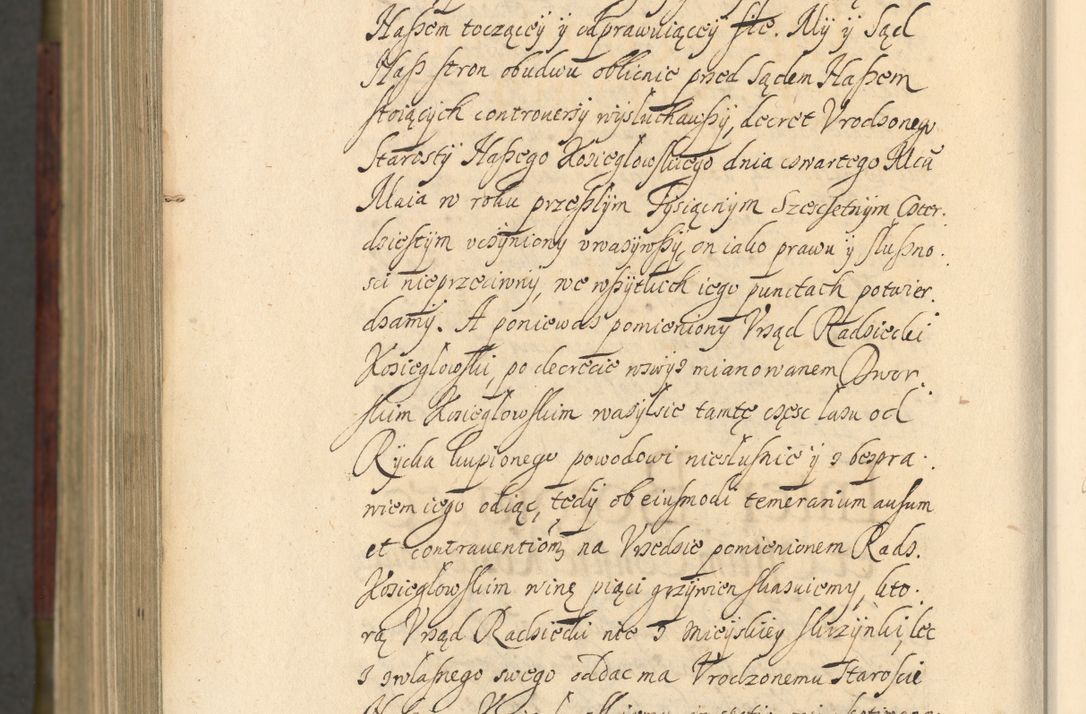 Naszem toczącey y odprawuiącey sie. My y Sąd
Nasz stron obudwu oblicnie przed Sądem Naszem
stoiących controuersy wysłuchauszy, decret Vrodzonego
Starosty Naszego Kozieglowskiego dnia czwartego Mcа
Maia w roku przeszłym Tysiącnym Szescsetnym Czter.
dziestym vczyniony vważywszy, on iako prawu y słuszno.
sci nieprzeciwny, we wszytkich iego punctach potwier.
dzamy. A poniewaz pomieniony Vrząd Radziecki
Kozieglowski, po decrecie wzwyz mianowanem Dwor.
skim Kozieglowskim wazyl sie tamtę częsc lasu od
Rycha kupionego powodowi niesłusznie y z bezpra.
wiem iego odiąc, tedy ob eiusmodi temerarium ausum
et contrauentiom, na Vrzedzie pomienionem Radz.
Kozieglowskim winę pięci grzywien skazuiemy, kto.
rą Vrząd Radziecki nie z Mieyskiey skrzynki, lec
z własnego swego oddac ma Vrodzonemu Staroscie